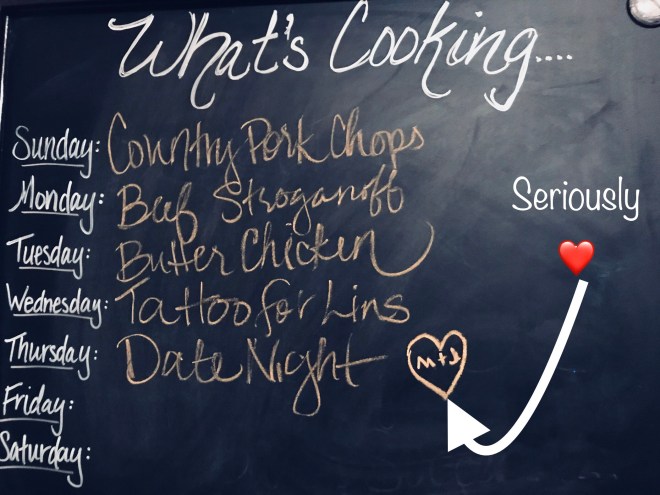 What's Cooking....
Sunday: Country Pork Chops
Monday: Beef Stroganoff
Seriously
Tuesday: Butter Chicken
Wednesday: Tattoo for Lins
Thursday: Date Night
Friday:
Saturday: